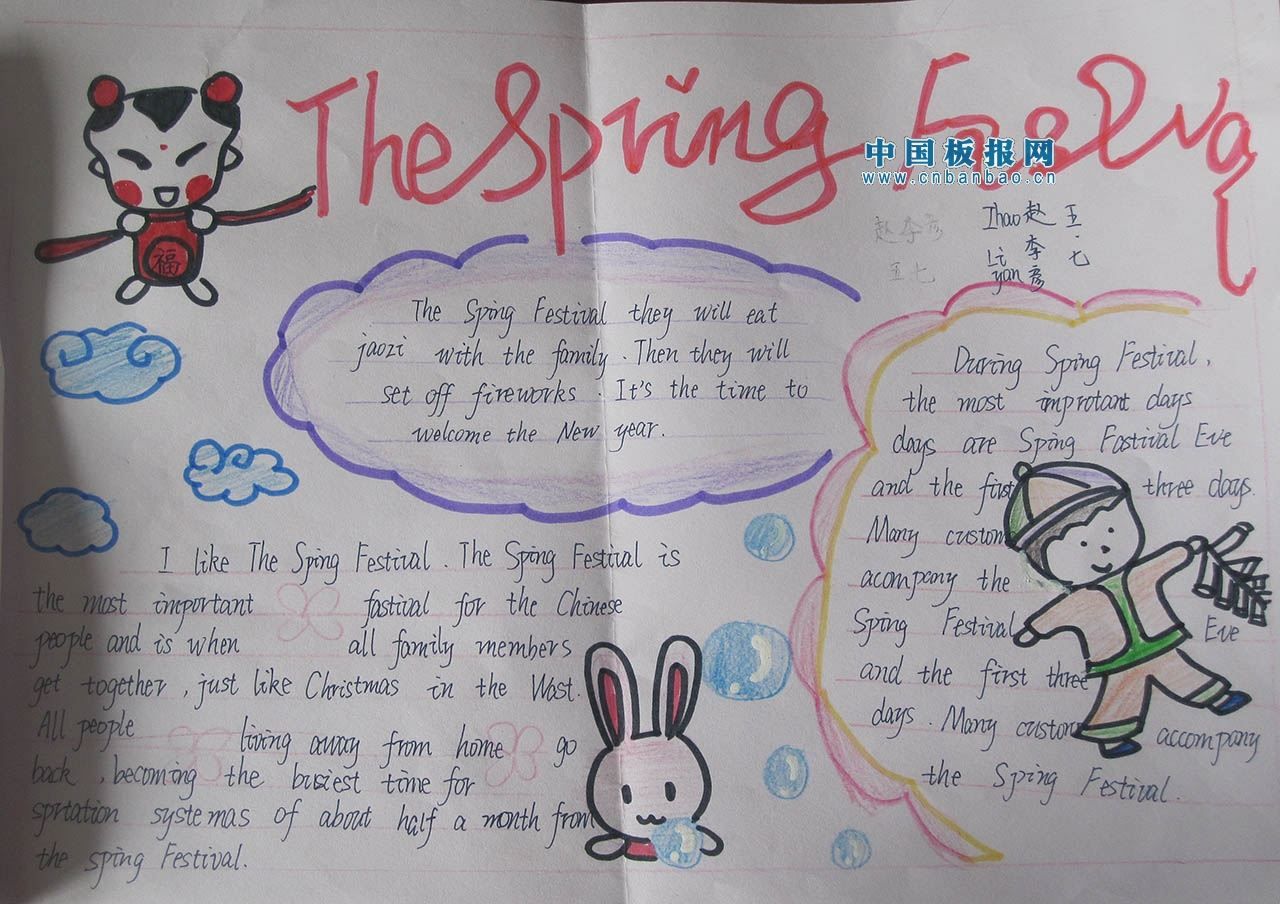 The Spring Festival
中国板报网
www.cnbanbao.cn
福
赵李彦
五七
Zhao赵 五
Li 李 七
yan彦
The Sping Festival they will eat
jaozi with the family. Then they will
set off fireworks. It's the time to
welcome the New year.
During Sping Festival,
the most improtant days
days are Sping Fastival Eve
and the first three days.
Many custom
acompany the
Sping Festival Eve
and the first three
days. Many custom accompany
the Sping Festival.
I like The Sping Festival. The Sping Festival is
the most important fastival for the Chinese
people and is when all family members
get together, just like Christmas in the Wast.
All people living away from home go
back, becoming the busiest time for
sprtation systemas of about half a month from
the sping Festival.